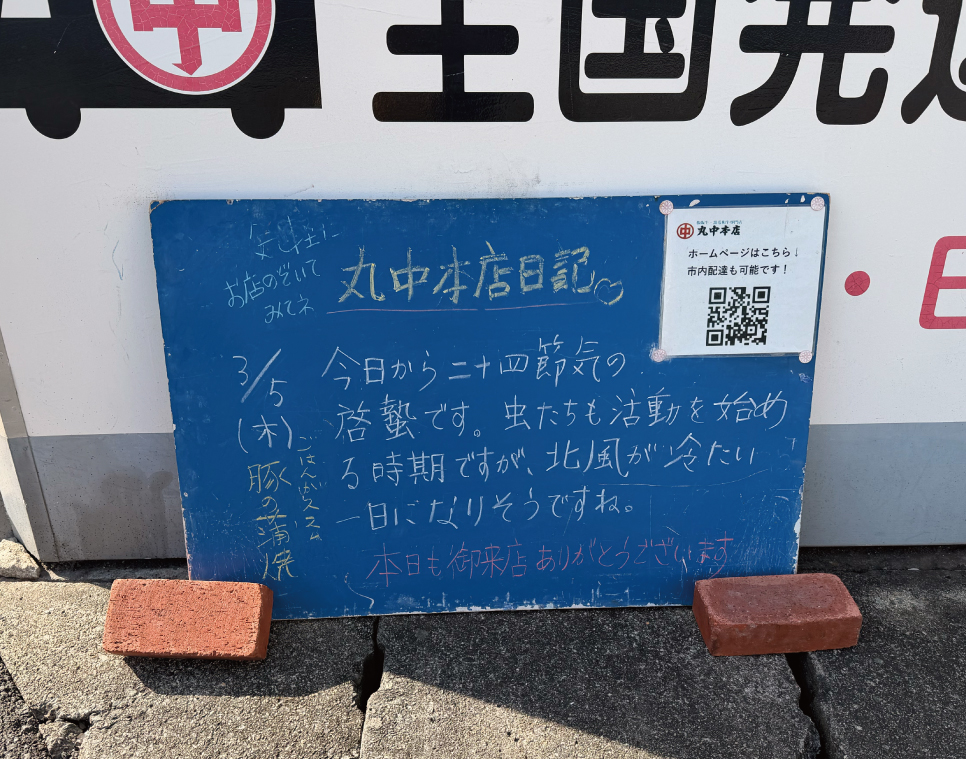 中
全国発送
気軽に
お店のぞいて
みてネ
丸中本店日記
中
丸中本店
ホームページはこちら↓
市内配達も可能です!
・日
3/5
(木)
ごはんがススム
豚の蒲焼
今日から二十四節気の
啓蟄です。虫たちも活動を始め
る時期ですが、北風が冷たい
一日になりそうですね。
本日も御来店ありがとうございます